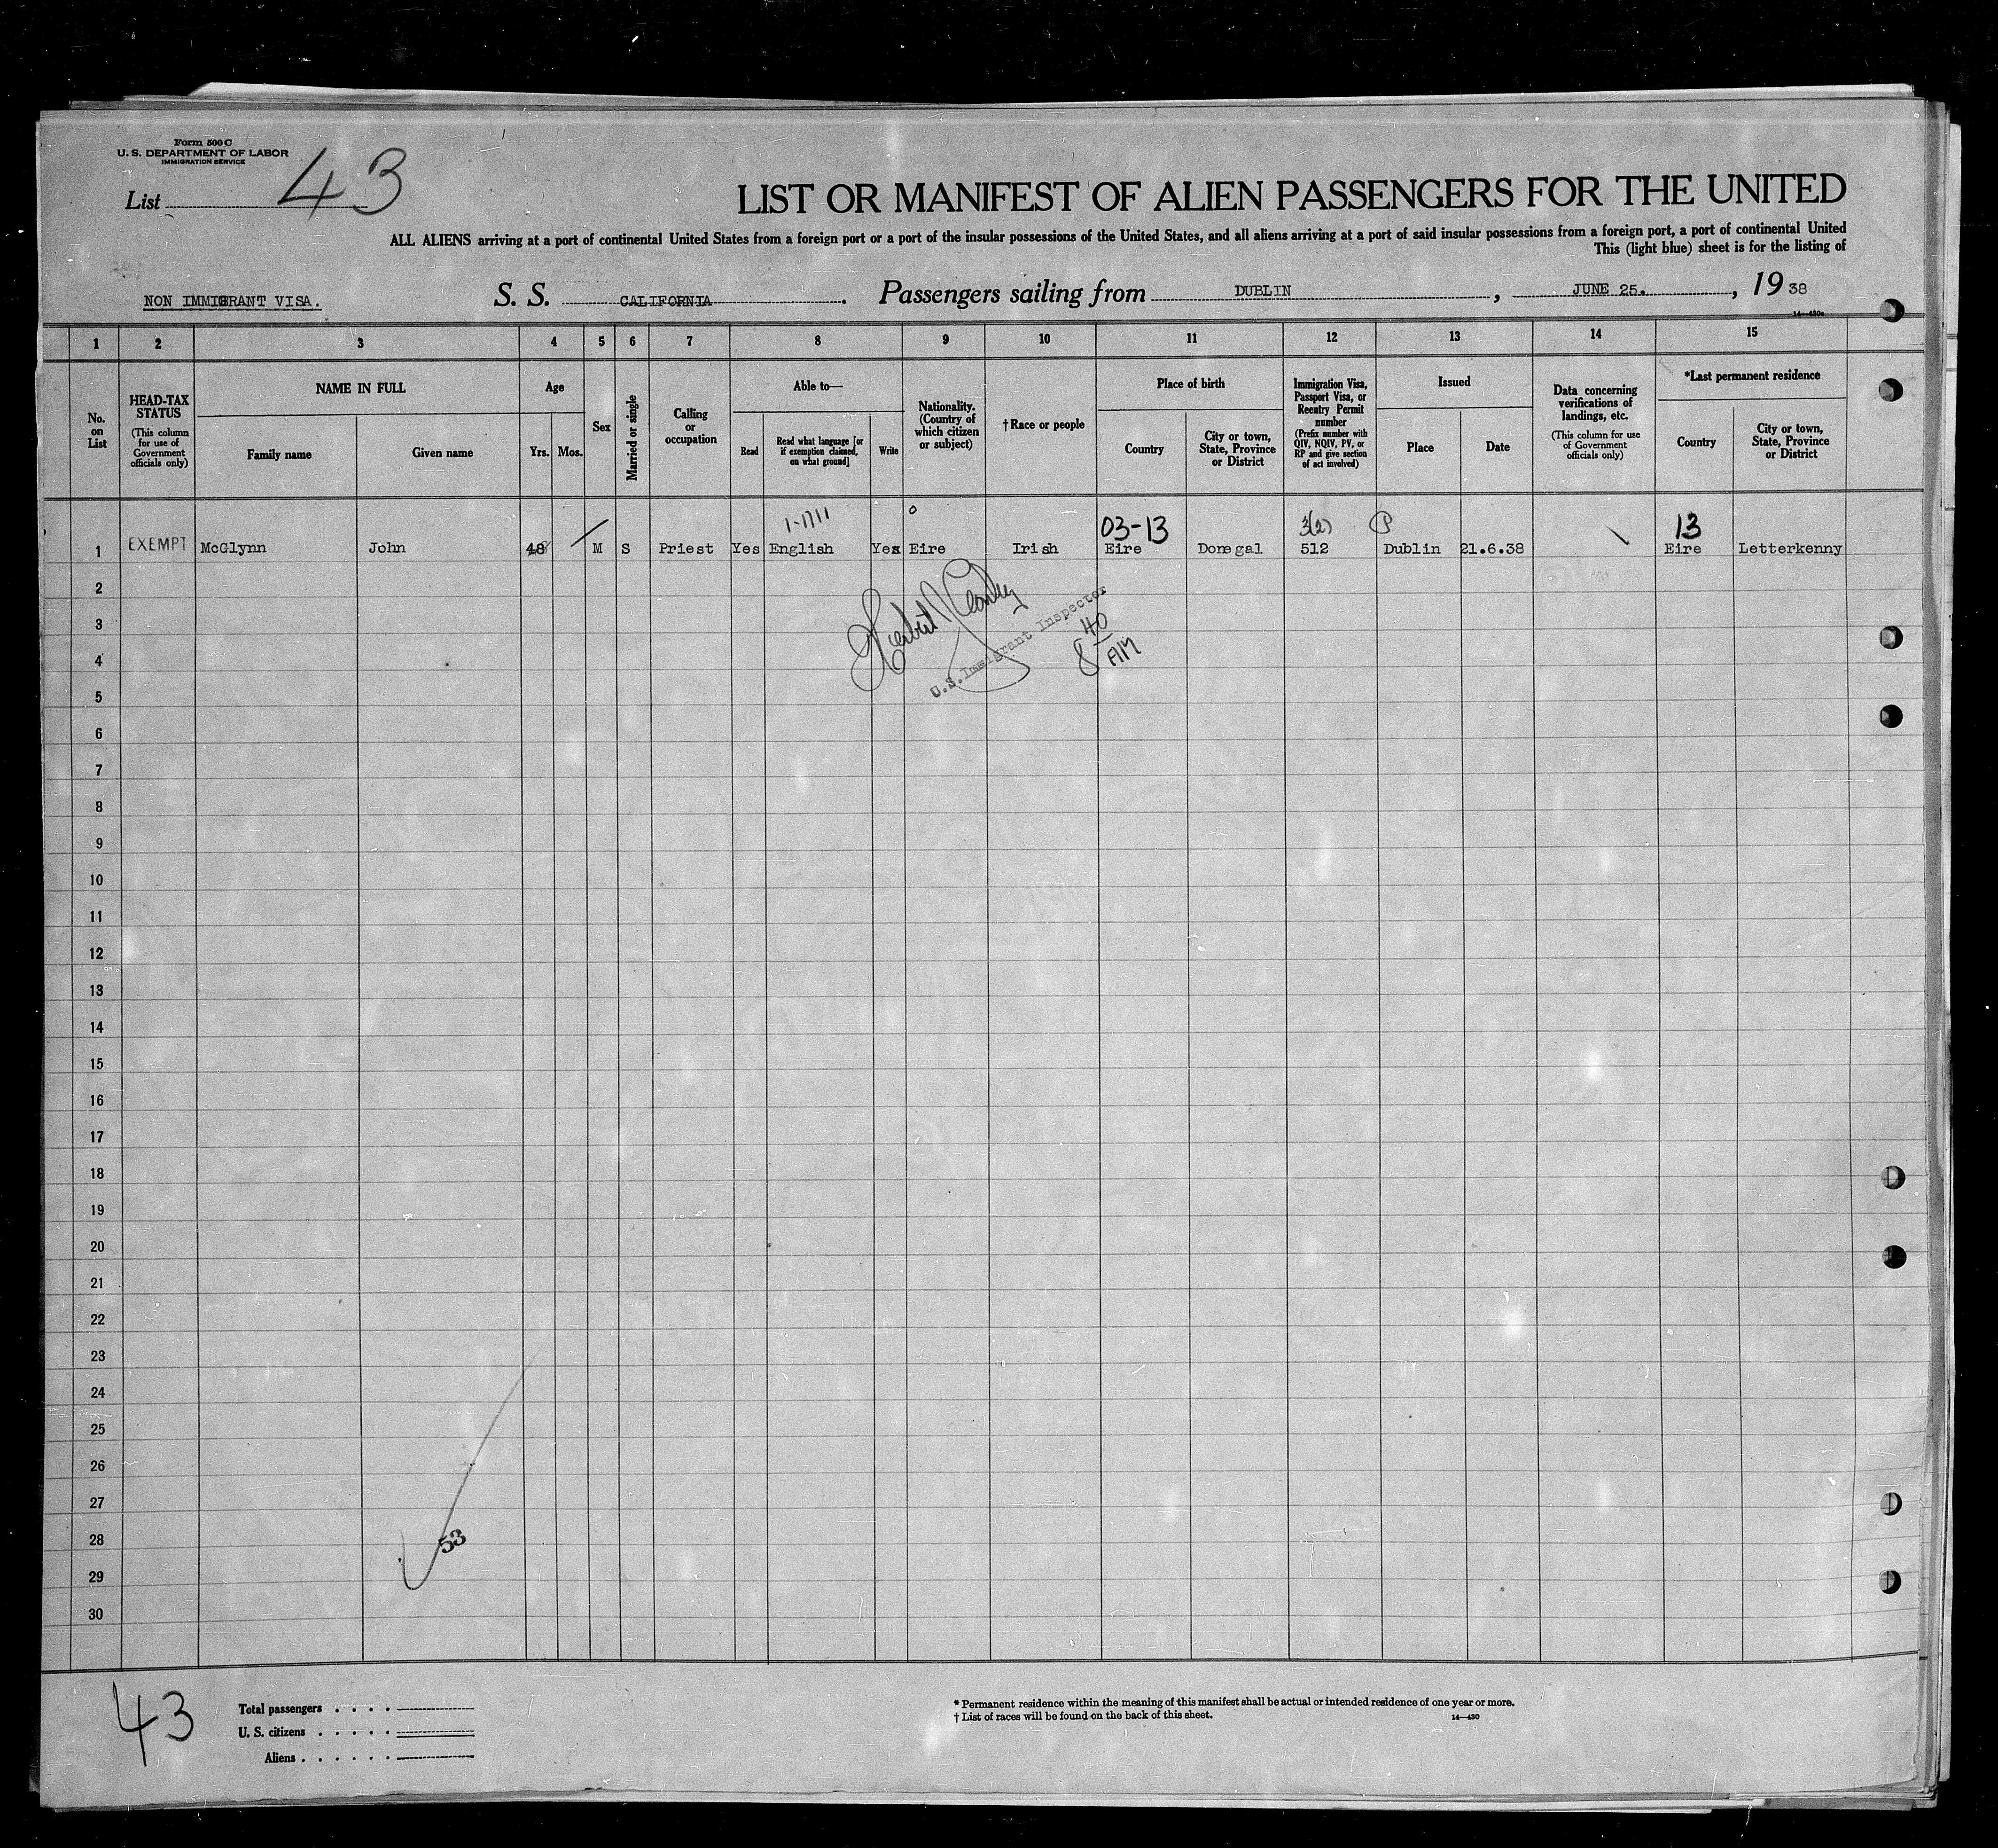 Form 500 C
U. S. DEPARTMENT OF LABOR
IMMIGRATION SERVICE
List 43
LIST OR MANIFEST OF ALIEN PASSENGERS FOR THE UNITED
ALL ALIENS arriving at a port of continental United States from a foreign port or a port of the insular possessions of the United States, and all aliens arriving at a port of said insular possessions from a foreign port, a port of continental United
This (light blue) sheet is for the listing of
NON IMMIGRANT VISA. S. S. CALIFORNIA. Passengers sailing from DUBLIN, JUNE 25., 1938
14—430a
1 2 3 4 5 6 7 8 9 10 11 12 13 14 15
No. on List
HEAD-TAX STATUS
(This column for use of Government officials only)
NAME IN FULL
Family name
Given name
Age
Yrs. Mos.
Sex
Married or single
Calling or occupation
Able to—
Read
Read what language [or if exemption claimed, on what ground]
Write
Nationality. (Country of which citizen or subject)
†Race or people
Place of birth
Country
City or town, State, Province or District
Immigration Visa, Passport Visa, or Reentry Permit number
(Prefix number with QIV, NQIV, PV, or RP and give section of act involved)
Issued
Place
Date
Data concerning verifications of landings, etc.
(This column for use of Government officials only)
*Last permanent residence
Country
City or town, State, Province or District
03-13 3(2) P 13
1 EXEMPT McGlynn John 48 M S Priest Yes English Yes Eire Irish Eire Donegal 512 Dublin 21.6.38 Eire Letterkenny
2
3
U.S. Immigrant Inspector
8 40 AM
4
5
6
7
8
9
10
11
12
13
14
15
16
17
18
19
20
21
22
23
24
25
26
27
28
53
29
30
43
Total passengers . . . .
U. S. citizens . . . . .
Aliens . . . . . .
* Permanent residence within the meaning of this manifest shall be actual or intended residence of one year or more.
† List of races will be found on the back of this sheet. 14—430